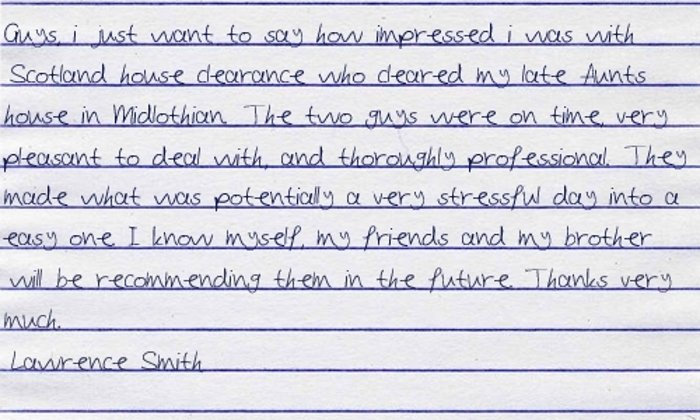 Guys, i just want to say how impressed i was with
Scotland house clearance who cleared my late Aunts
house in Midlothian. The two guys were on time, very
pleasant to deal with, and thoroughly professional. They
made what was potentially a very stressful day into a
easy one. I know myself, my friends and my brother
will be recommending them in the future. Thanks very
much.
Lawrence Smith